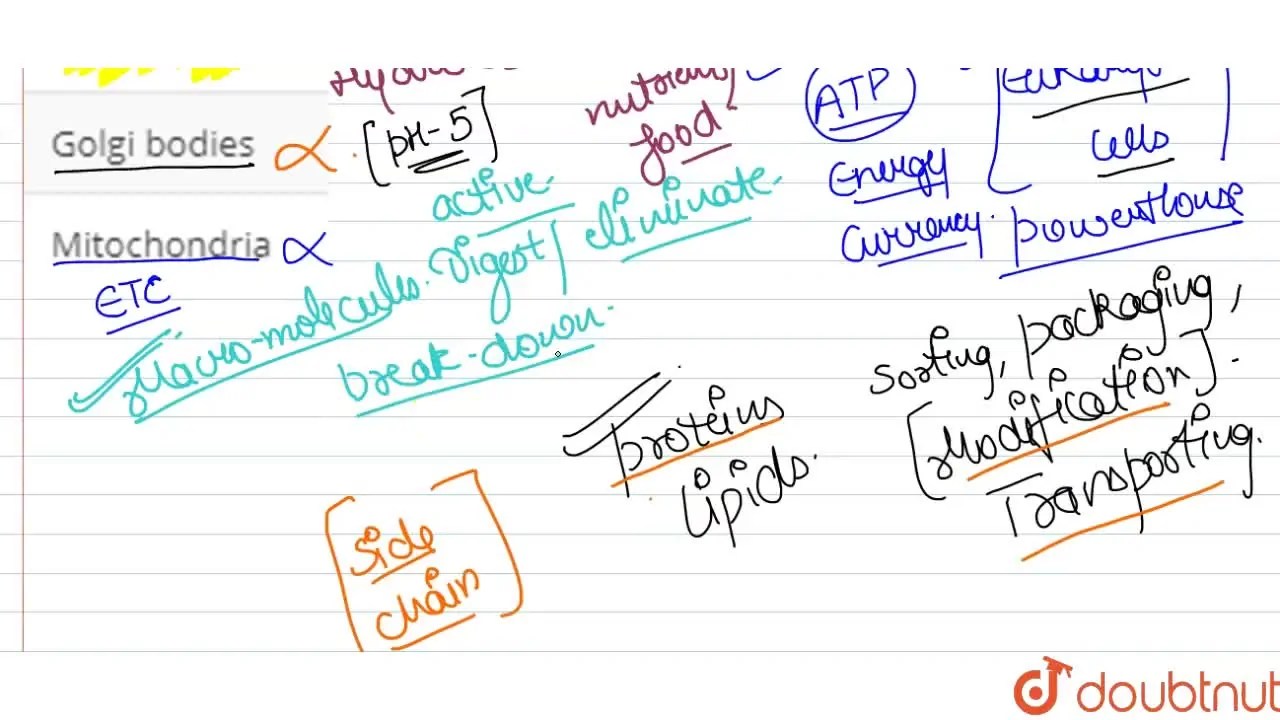 nutrients/
ATP
Golgi bodies
[pH-5]
food
cells
Energy
active
eliminate
Currency
powerhouse
Mitochondria
Digest/
ETC
Macro-molecules.
break-down.
sorting, packaging,
[Modification].
Transporting.
Proteins
Lipids.
[Side
chain]
doubtnut